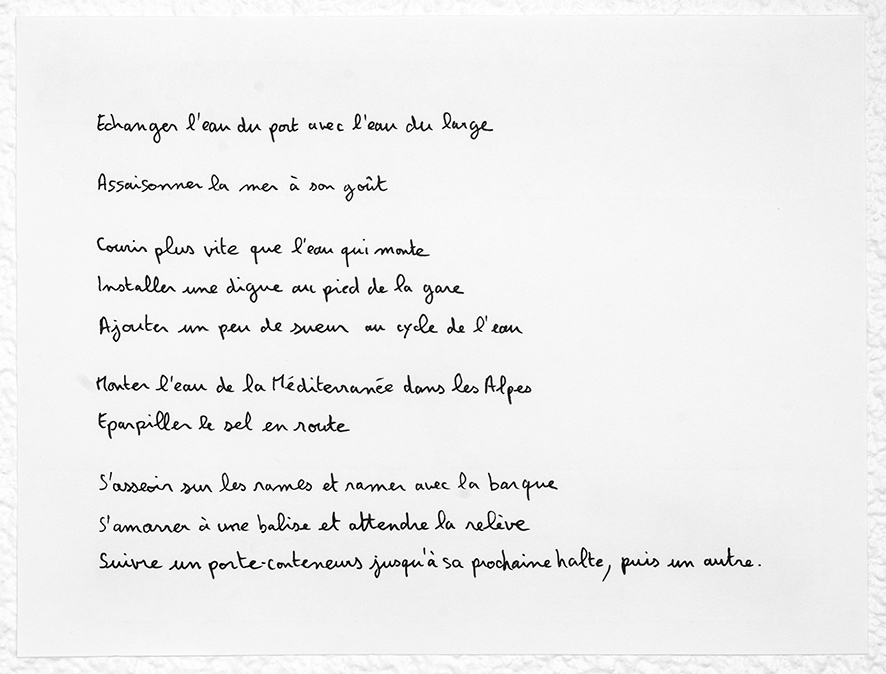 Echanger l'eau du port avec l'eau du large
Assaisonner la mer à son goût
Courir plus vite que l'eau qui monte
Installer une digue au pied de la gare
Ajouter un peu de sueur au cycle de l'eau
Monter l'eau de la Méditerranée dans les Alpes
Eparpiller le sel en route
S'asseoir sur les rames et ramer avec la barque
S'amarrer à une balise et attendre la relève
Suivre un porte-conteneurs jusqu'à sa prochaine halte, puis un autre.